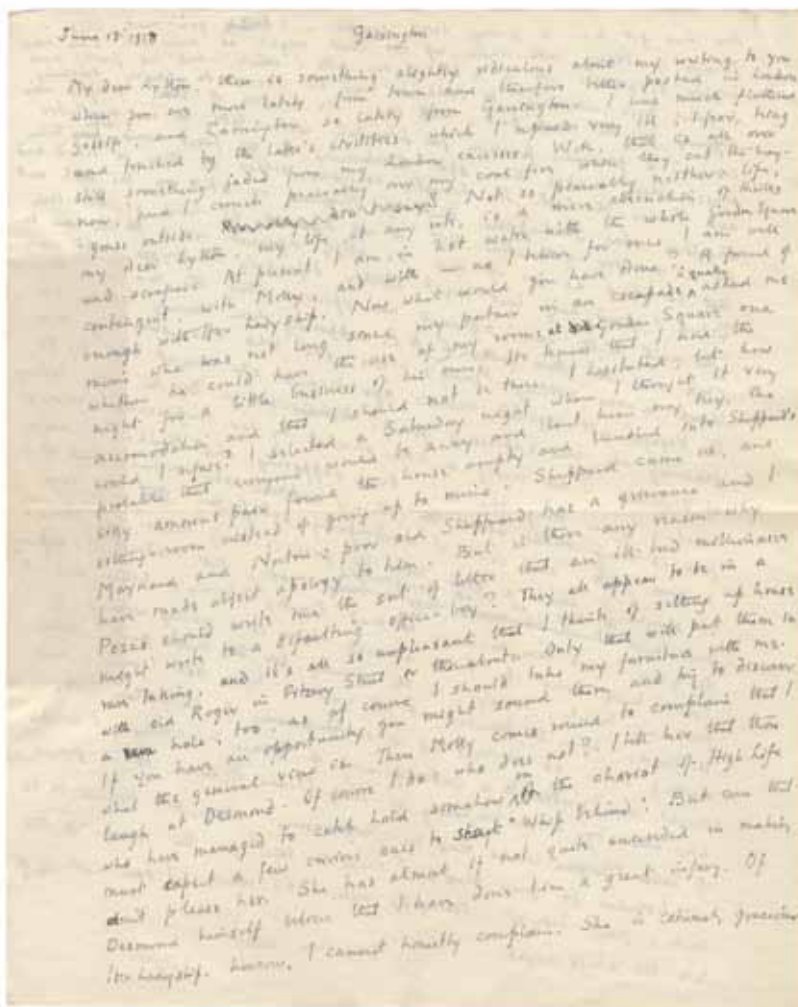 June 18 1918 Garsington
My dear Lytton, there is something slightly ridiculous about my writing to you
when you are more lately from town and therefore better posted in London
gossip, and Carrington so lately from Garsington. I was much
and touched by the latter's civilities, which I repaid very ill I fear, being
still something jaded from my London exercises. Well, that is all over
now, and I crouch peaceably over my coal fire while they cut the hay-
grass outside. Not so peaceably neither. Life,
my dear Lytton, my life at any rate, is a mere alternation of
and scrapes. At present I am in hot water with the whole Gordon Square
contingent, with Molly, and with — no I believe for once I am well
enough with Her Ladyship. Now what would you have done? A friend of
mine who was not long since my partner in an escapade asked me
whether he could have the use of my rooms at Gordon Square one
night for a little business of his own. He knew that I had the
accomodation and that I should not be there. I hesitated, but how
could I refuse? I selected a Saturday night when I thought it very
probable that everyone would be away and lent him my key. The
silly amorous pair found the house empty and bundled into Sheppard's
sitting-room instead of going up to mine. Sheppard came in, and
Maynard and Norton: poor old Sheppard has a grievance and I
have made abject apology to him. But is there any reason why
Pozzo should write me the sort of letter that an ill-bred millionaire
might write to a defaulting office-boy? They all appear to be in a
rare taking, and it's all so unpleasant that I think of setting up house
with old Roger in Fitzroy Street or thereabouts. Only that will put them in
a hole, too, as of course I should take my furniture with me.
If you have an opportunity you might sound them and try to discover
what the general view is. Then Molly comes round to complain that I
laugh at Desmond. Of course I do: who does not? I tell her that those
who have managed to catch hold somehow on the chariot of High Life
must expect a few envious ones to shout "Whip behind". But even that
don't please her. She has almost if not quite succeeded in making
Desmond himself believe that I have done him a great injury. Of
Her Ladyship, however, I cannot honestly complain. She is certainly gracious